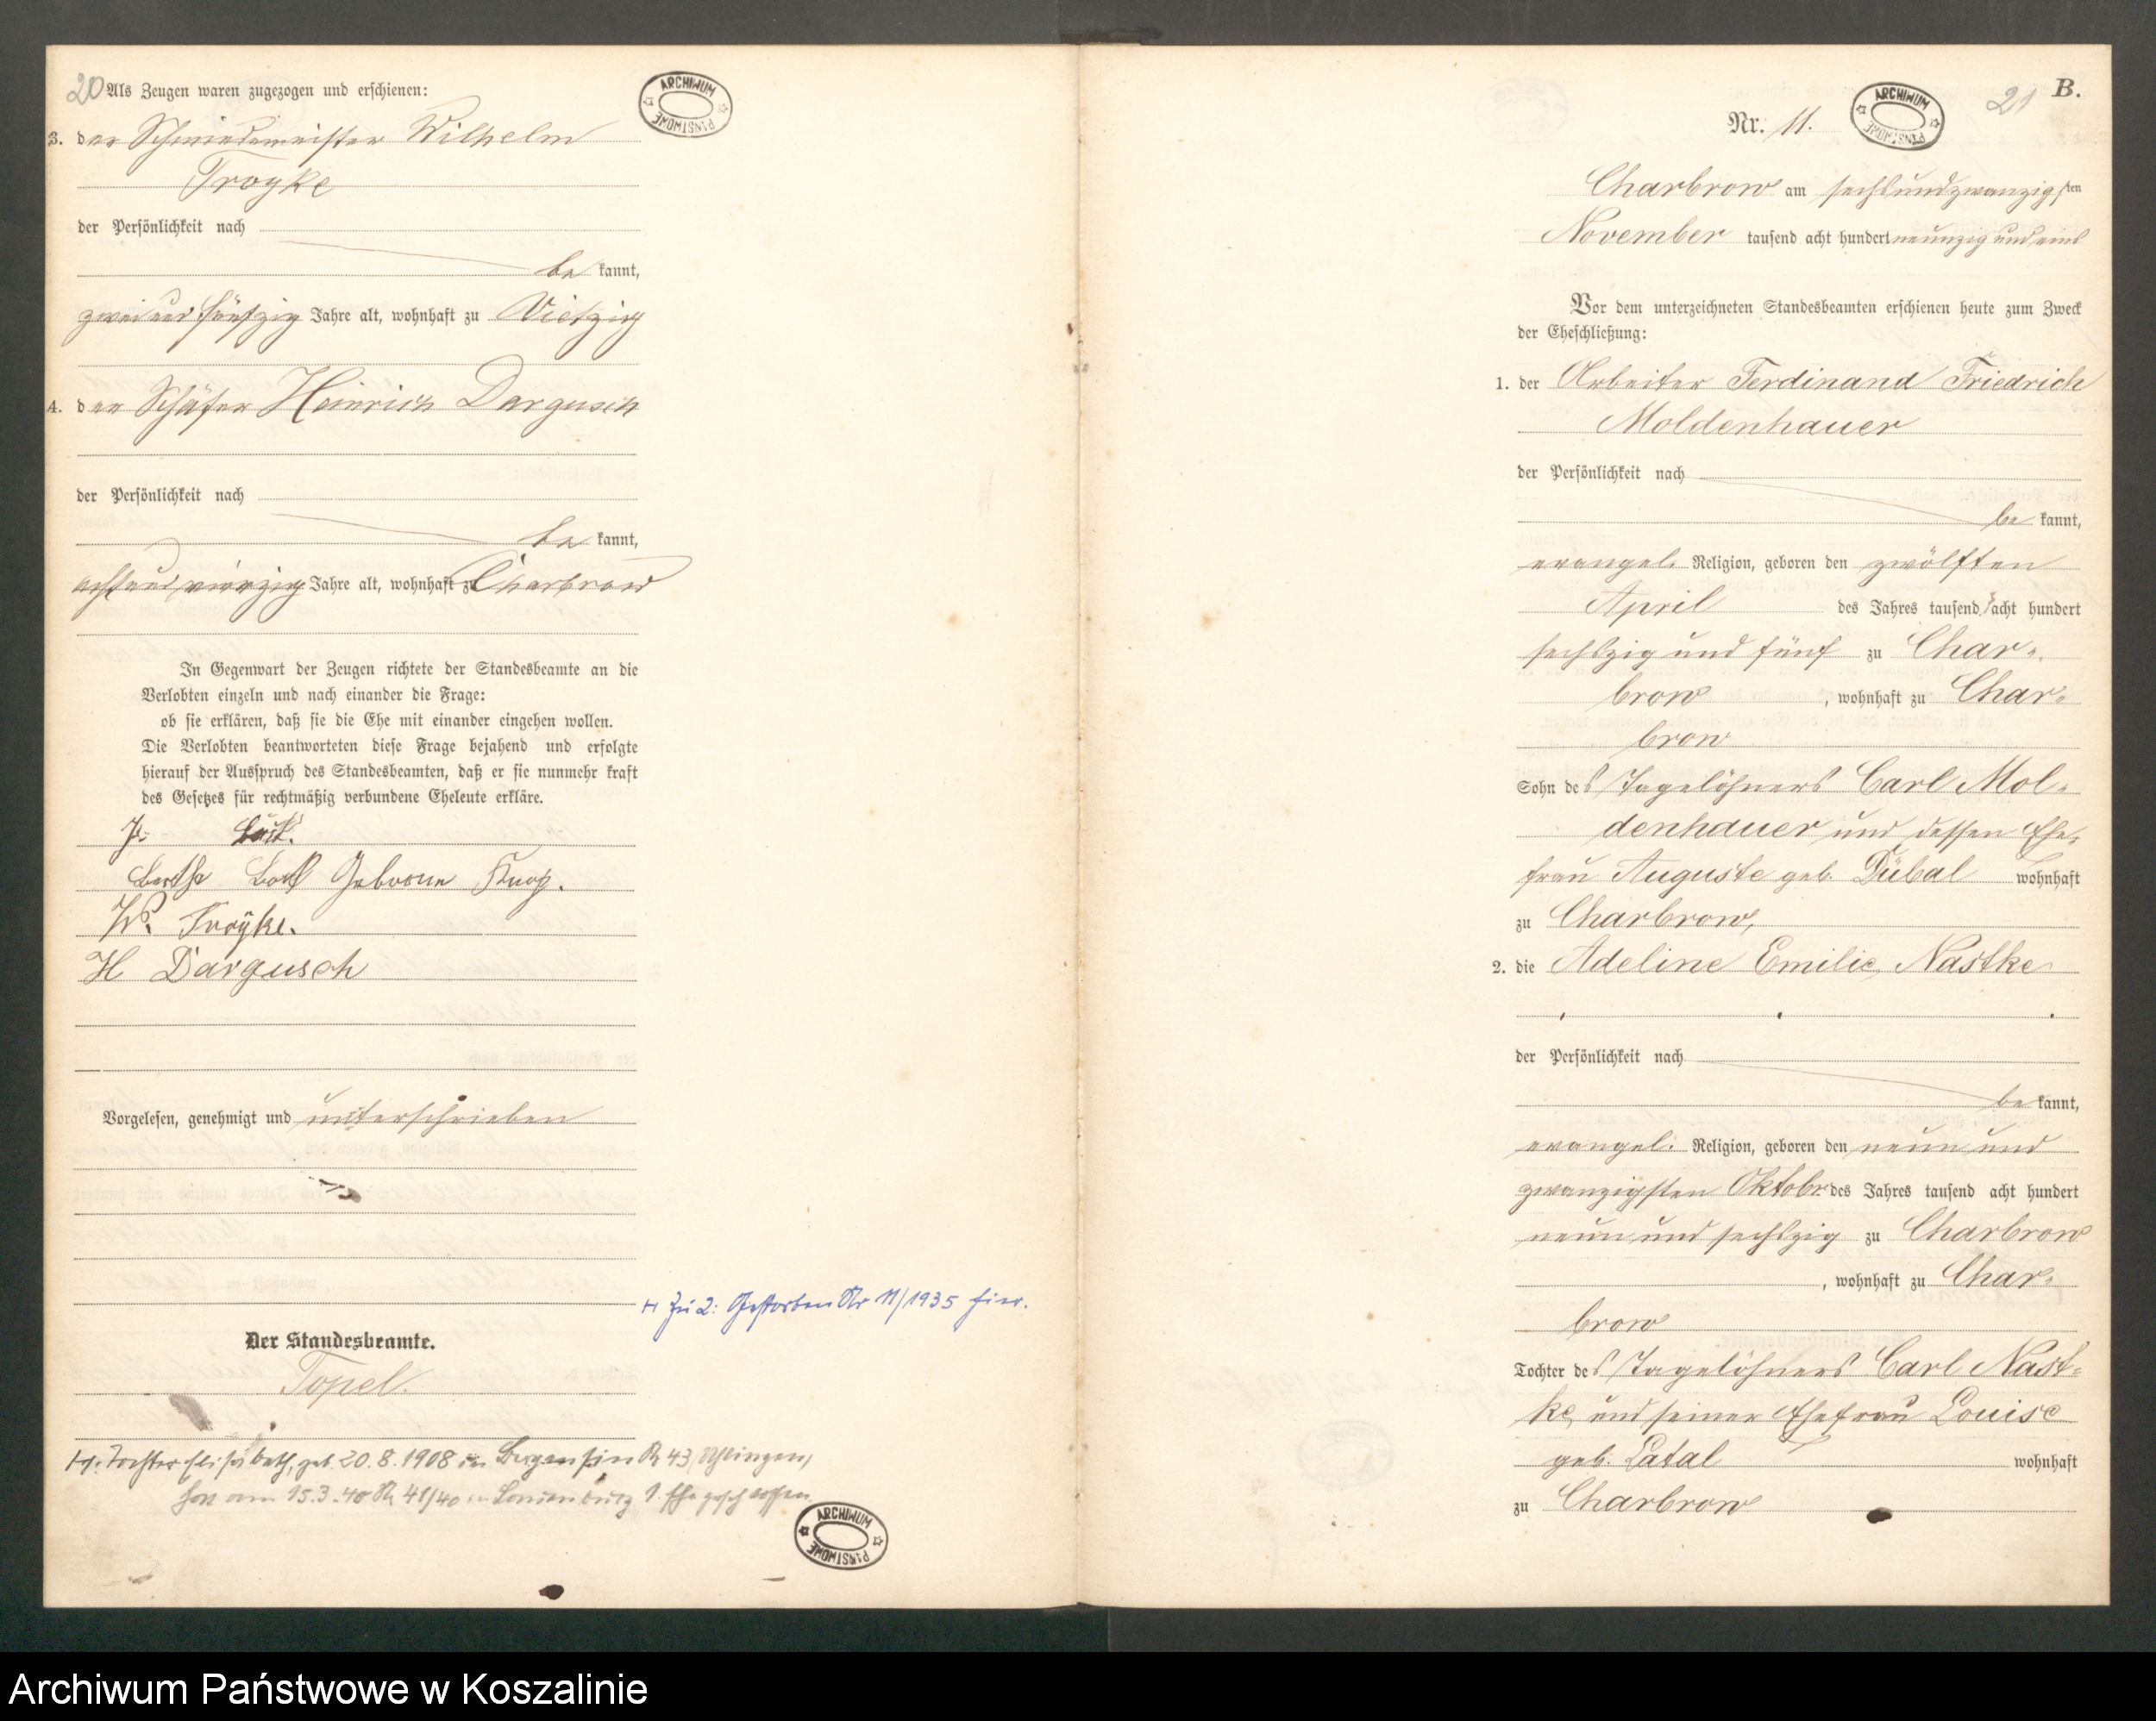 20 Als Zeugen waren zugezogen und erschienen:
3. der Schmiedemeister Wilhelm
Troyke
der Persönlichkeit nach
be kannt,
zweiundfünfzig Jahre alt, wohnhaft zu Vietzig
4. der Schäfer Heinrich Dargusch
der Persönlichkeit nach
be kannt,
achtundvierzig Jahre alt, wohnhaft zu Charbrow
In Gegenwart der Zeugen richtete der Standesbeamte an die
Verlobten einzeln und nach einander die Frage:
ob sie erklären, daß sie die Ehe mit einander eingehen wollen.
Die Verlobten beantworteten diese Frage bejahend und erfolgte
hierauf der Ausspruch des Standesbeamten, daß er sie nunmehr kraft
des Gesetzes für rechtmäßig verbundene Eheleute erkläre.
Bertha Geborne
W. Troÿke.
H Dargusch
Vorgelesen, genehmigt und unterschrieben
H Zu 2: Gestorben Nr 11/1935 hier.
Der Standesbeamte.
Topel.
H. Tochter Elisabeth, geb. 20.8.1908 in Bergensin 43
hat am 15.3.40 Nr 41/40 in Lauenburg 1. Ehe geschlossen
ARCHIWUM PAŃSTWOWE
B.
21
Nr. 11.
ARCHIWUM PAŃSTWOWE
Charbrow am sechsundzwanzigsten
November tausend acht hundert neunzig und eins
Vor dem unterzeichneten Standesbeamten erschienen heute zum Zweck
der Eheschließung:
1. der Arbeiter Ferdinand Friedrich
Moldenhauer
der Persönlichkeit nach
be kannt,
evangel. Religion, geboren den zwölften
April des Jahres tausend acht hundert
sechszig und fünf zu Char-
brow, wohnhaft zu Char-
brow
Sohn des Tagelöhners Carl Mol-
denhauer und dessen Ehe-
frau Auguste geb. Dübal wohnhaft
zu Charbrow,
2. die Adeline Emilie Nastke
der Persönlichkeit nach
be kannt,
evangel. Religion, geboren den neun und
zwanzigsten Oktobr. des Jahres tausend acht hundert
neun und sechszig zu Charbrow
, wohnhaft zu Char-
brow
Tochter des Tagelöhners Carl Nast-
ke und seiner Ehefrau Louise
geb. Latal wohnhaft
zu Charbrow
ARCHIWUM PAŃSTWOWE
Archiwum Państwowe w Koszalinie